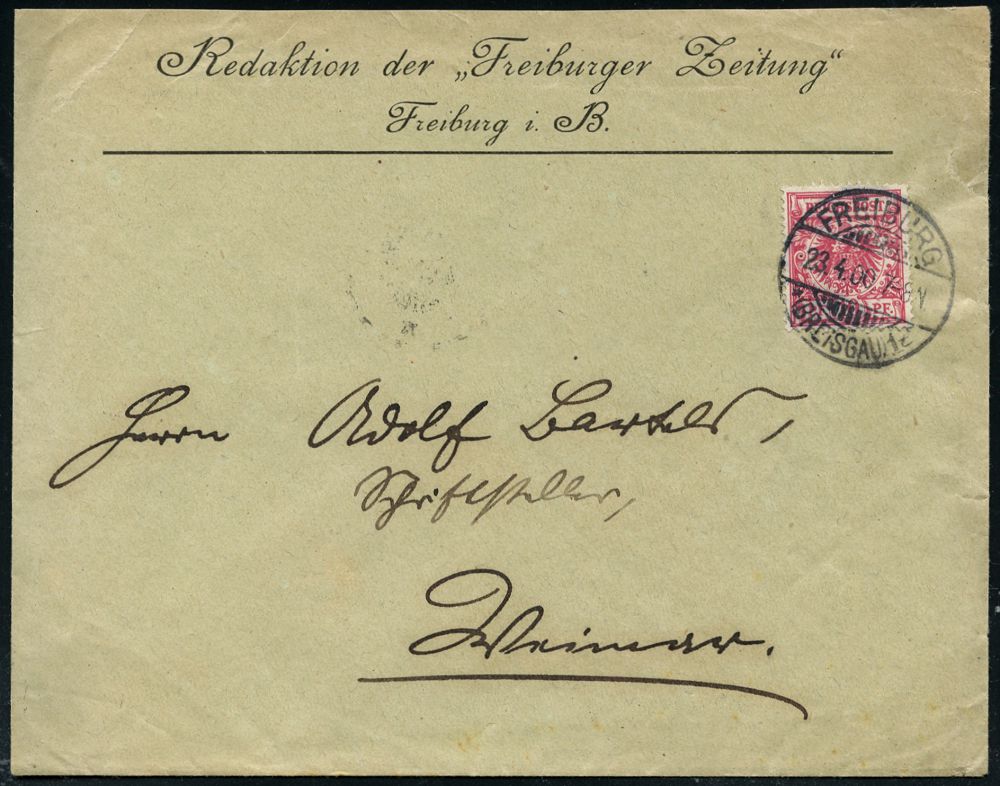 Redaktion der „Freiburger Zeitung“
Freiburg i. B.
FREIBURG
23.4.00 7-8 V
(BREISGAU) 1
PF.
Herrn Adolf Bartels,
Schriftsteller,
Weimar.